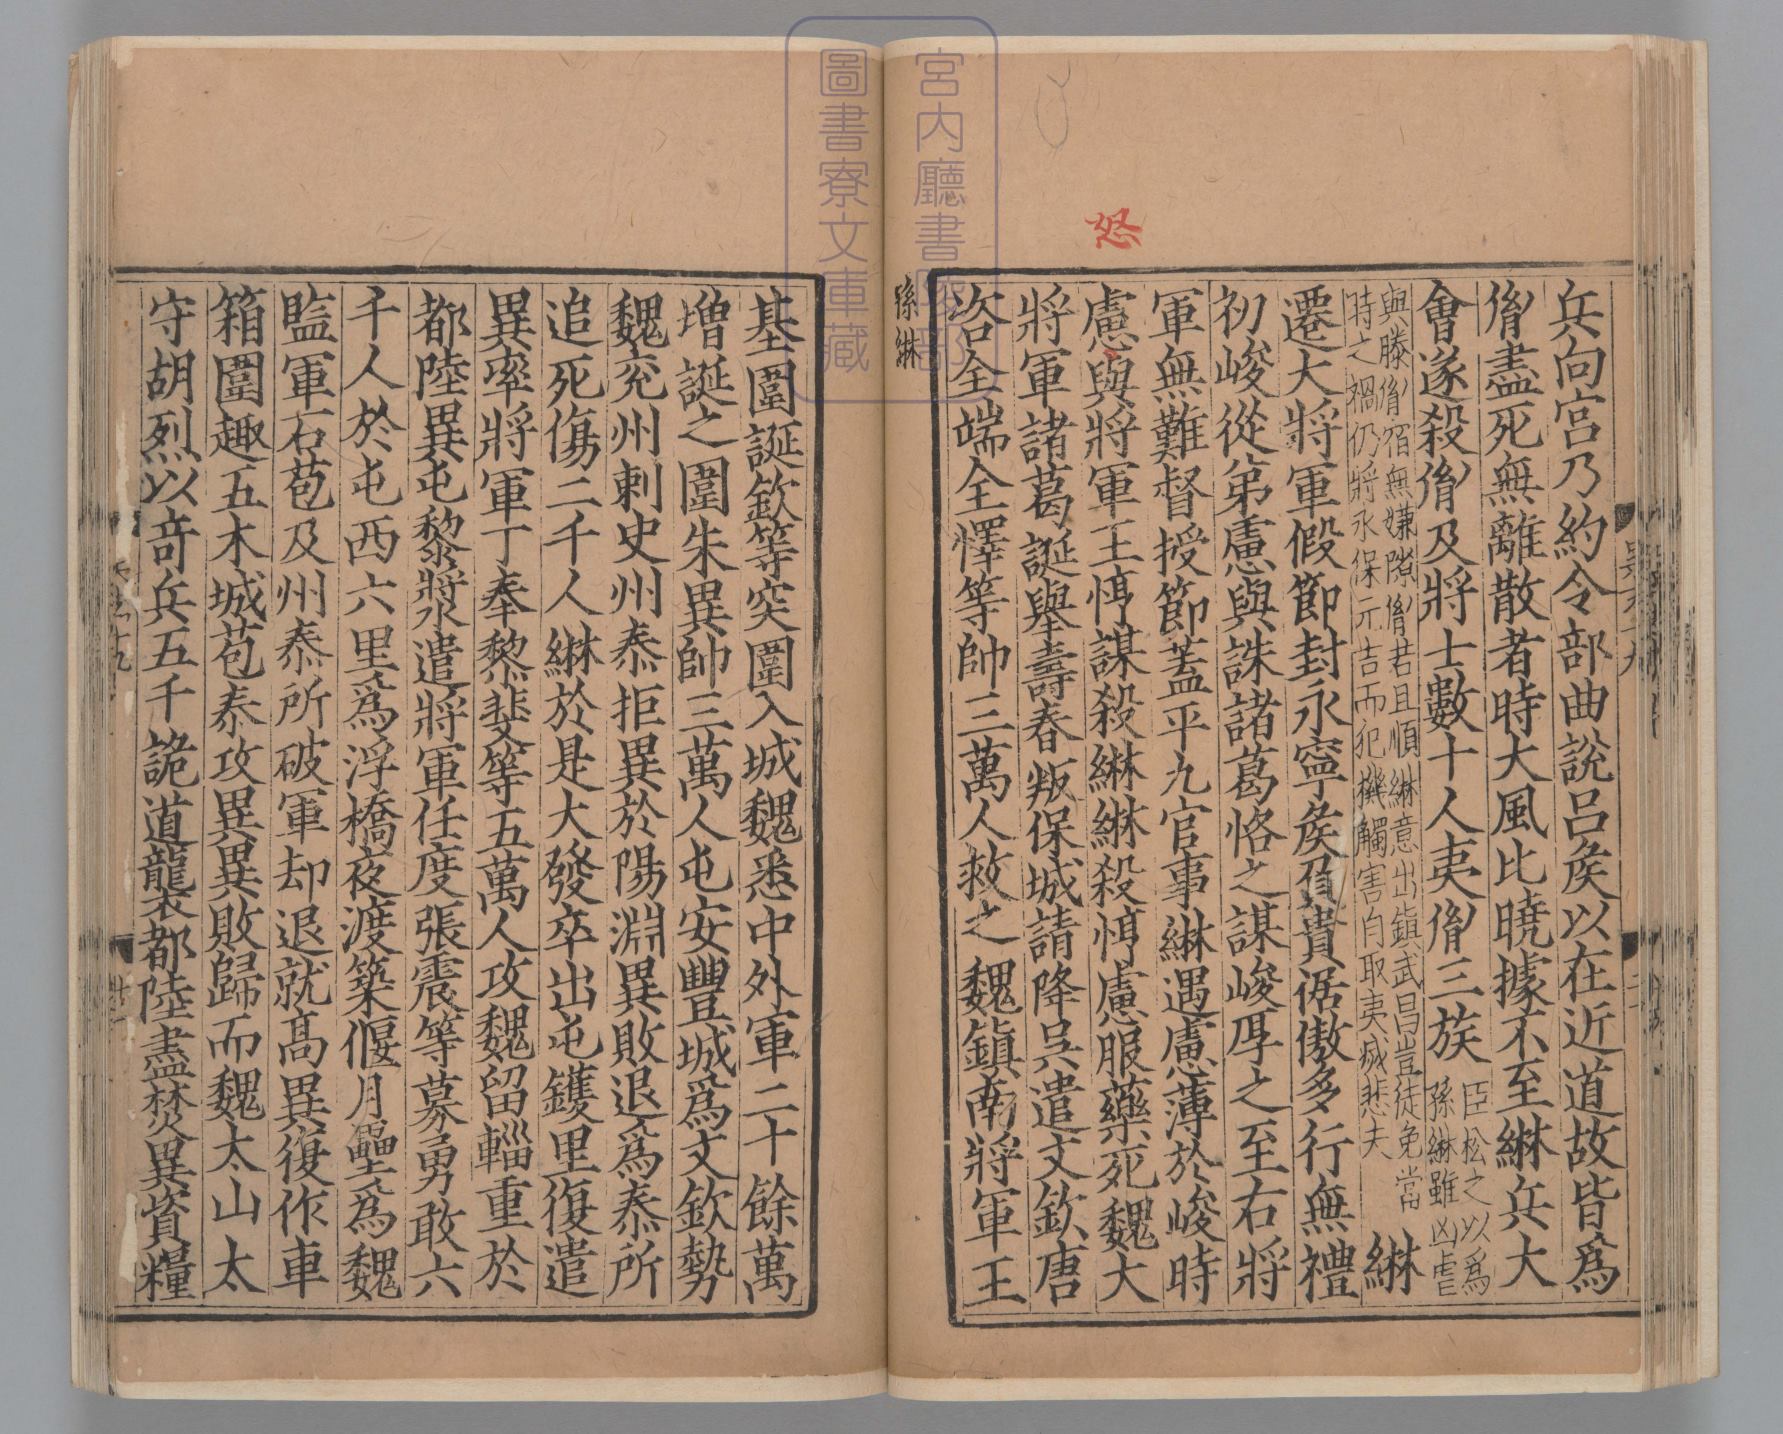 兵向宮乃約令部曲說呂矦以在近道故皆爲
胤盡死無離散者時大風比曉據不至綝兵大
會遂殺胤及將士數十人夷胤三族臣松之以爲
孫綝雖凶虐
與滕胤宿無嫌隙胤若且順綝意出鎮武昌豈徒免當
時之禍仍將永保元吉而犯機觸害自取夷滅悲夫
綝
遷大將軍假節封永寧矦負貴倨傲多行無禮
初峻從弟慮與誅諸葛恪之謀峻厚之至右將
軍無難督授節蓋平九官事綝遇慮薄於峻時
慮與將軍王惇謀殺綝綝殺惇慮服藥死魏大
將軍諸葛誕舉壽春叛保城請降吳遣文欽唐
咨全端全懌等帥三萬人救之魏鎮南將軍王
怒
孫綝
宮内廳書陵部
圖書寮文庫藏
基圍誕欽等突圍入城魏悉中外軍二十餘萬
增誕之圍朱異帥三萬人屯安豐城爲文欽勢
魏兖州刺史州泰拒異於陽淵異敗退爲泰所
追死傷二千人綝於是大發卒出屯鑊里復遣
異率將軍丁奉黎斐等五萬人攻魏留輜重於
都陸異屯黎漿遣將軍任度張震等募勇敢六
千人於屯西六里爲浮橋夜渡築偃月壘爲魏
監軍石苞及州泰所破軍却退就高異復作車
箱圍趣五木城苞泰攻異異敗歸而魏太山太
守胡烈以奇兵五千詭道襲都陸盡焚異資糧